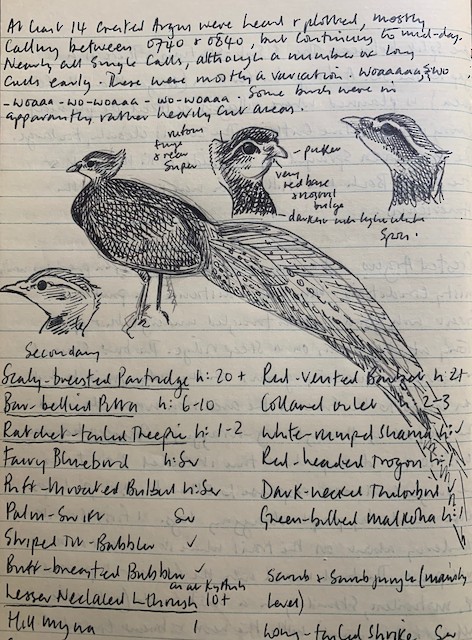 At least 14 Crested Argus were heard & plotted, mostly
Calling between 0740 & 0840, but continuing to mid-day.
Nearly all Single Calls, although a number of long
Calls early. These were mostly a variation. woaaaaa,
-woaaa-wo-woaaa-wo-woaaa. Some birds were in
apparently rather heavily cut areas.
rufous
& rear
Super
pinker
very
red base
nasal
bulge
darker with
Spots.
Secondary
Scaly-breasted Partridge h: 20+
Red-vented Barbet h: 2+
Bar-bellied Pitta h: 6-10
Collared owlet 2-3
Ratchet-tailed Treepie h: 1-2
White-rumped Shama h: ✓
Fairy Bluebird h: Sv
Red-headed Trogon h:
Puff-throated Bulbul h: Sv
Dark-necked Tailorbird
Palm-Swift Sv
Green-billed malkoha h: 1
Striped Tit-Babbler ✓
Buff-breasted Babbler ✓
Scrub & Scrub jungle (mainly
Lesser Necklaced L.thrush 10+
level)
Hill myna 1
Long-tailed Shrike Sv